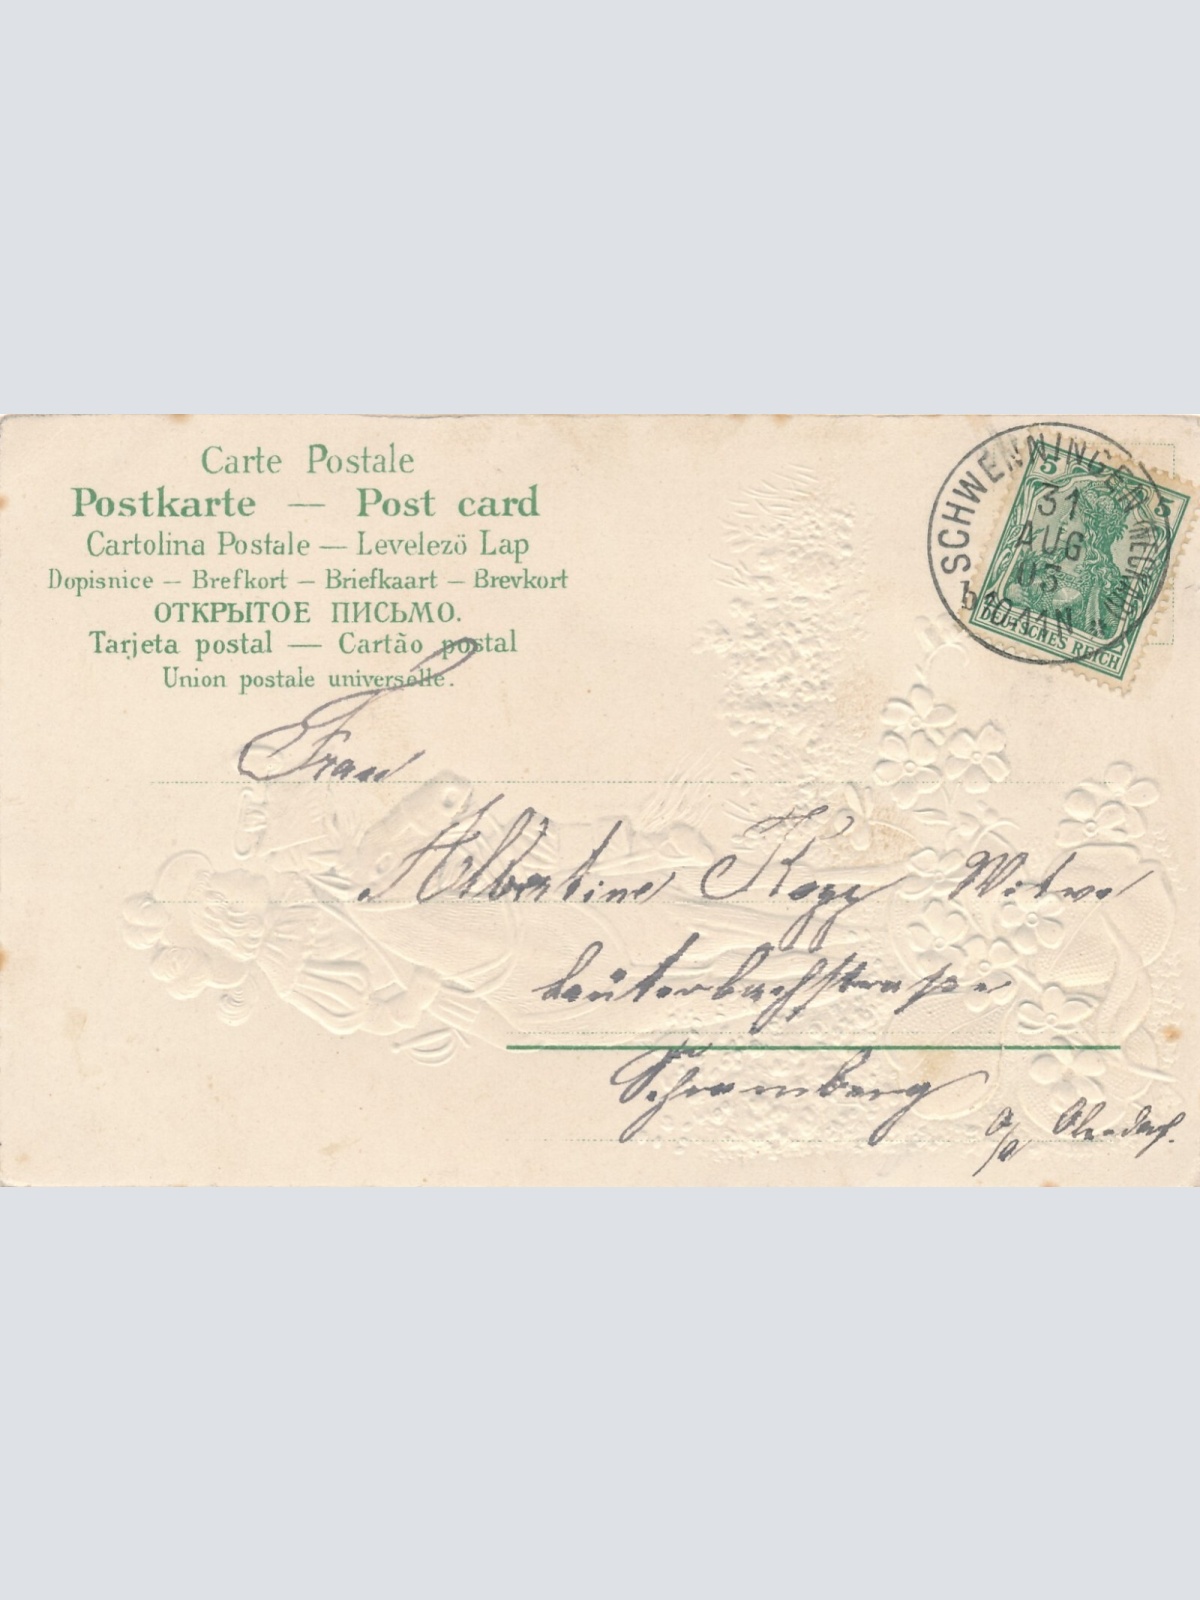 Carte Postale
Postkarte — Post card
Cartolina Postale — Levelező Lap
Dopisnice — Brefkort — Briefkaart — Brevkort
ОТКРЫТОЕ ПИСЬМО.
Tarjeta postal — Cartão postal
Union postale universelle.
SCHWENNINGEN (NECKAR)
31
AUG
b
5 5
DEUTSCHES REICH
Frau
Albertine Kopp Witwe
Lauterbachstraße
Schramberg